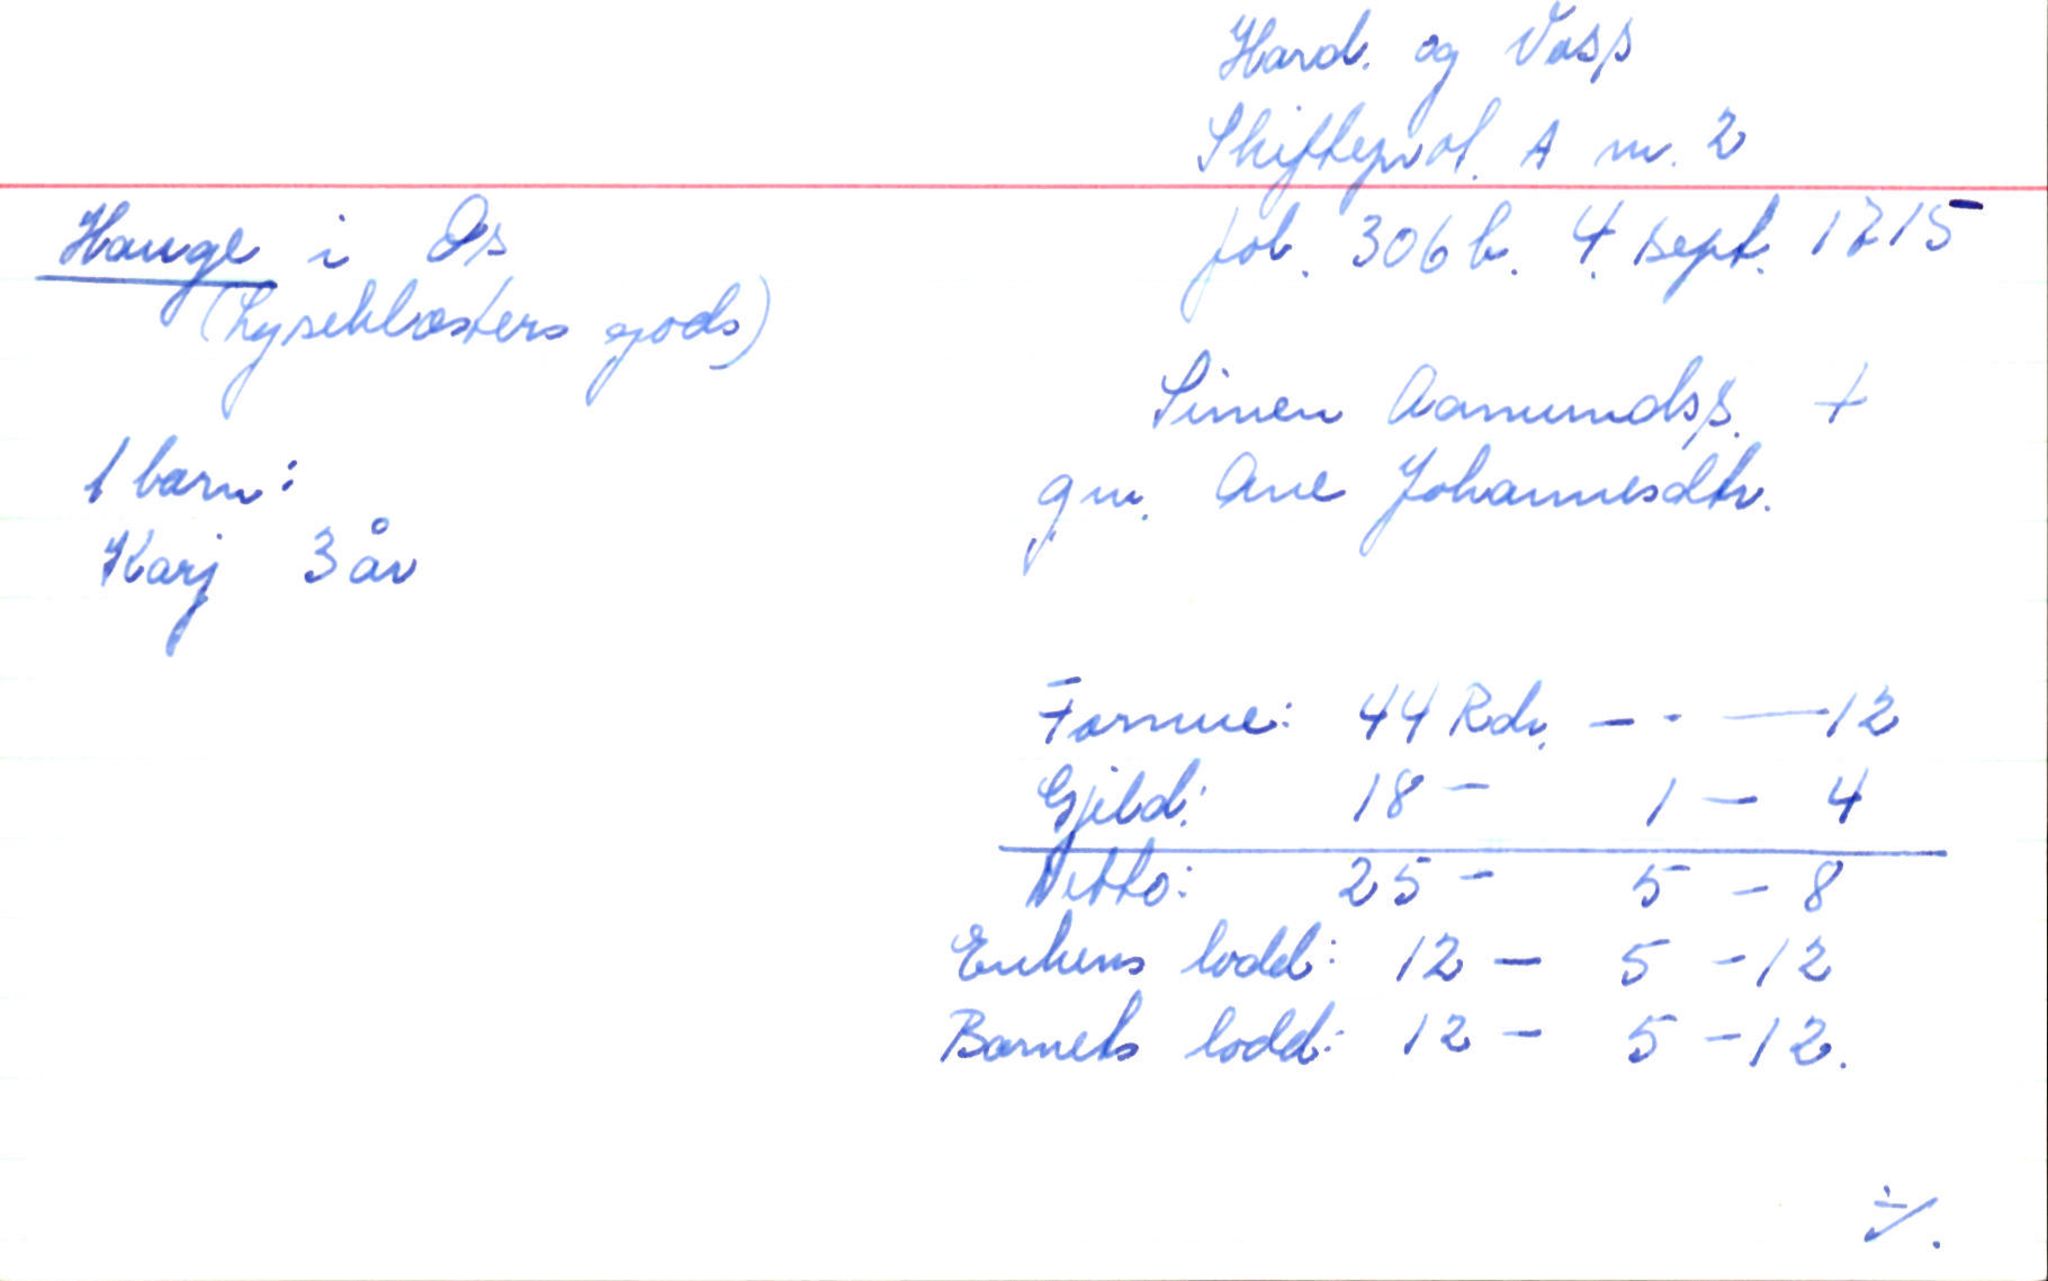 Hard. og Voss
Skifteprot. A nr. 2
fol. 306 b. 4. sept. 1715
Hauge i Os
(Lyseklosters gods)
Simen Aamundss. +
gm. Ane Johannesdtr.
1 barn:
Karj 3 år
Formue: 44 Rdr. - - - 12
Gjeld: 18 - 1 - 4
Netto: 25 - 5 - 8
Enkens lodd: 12 - 5 - 12
Barnets lodd: 12 - 5 - 12.